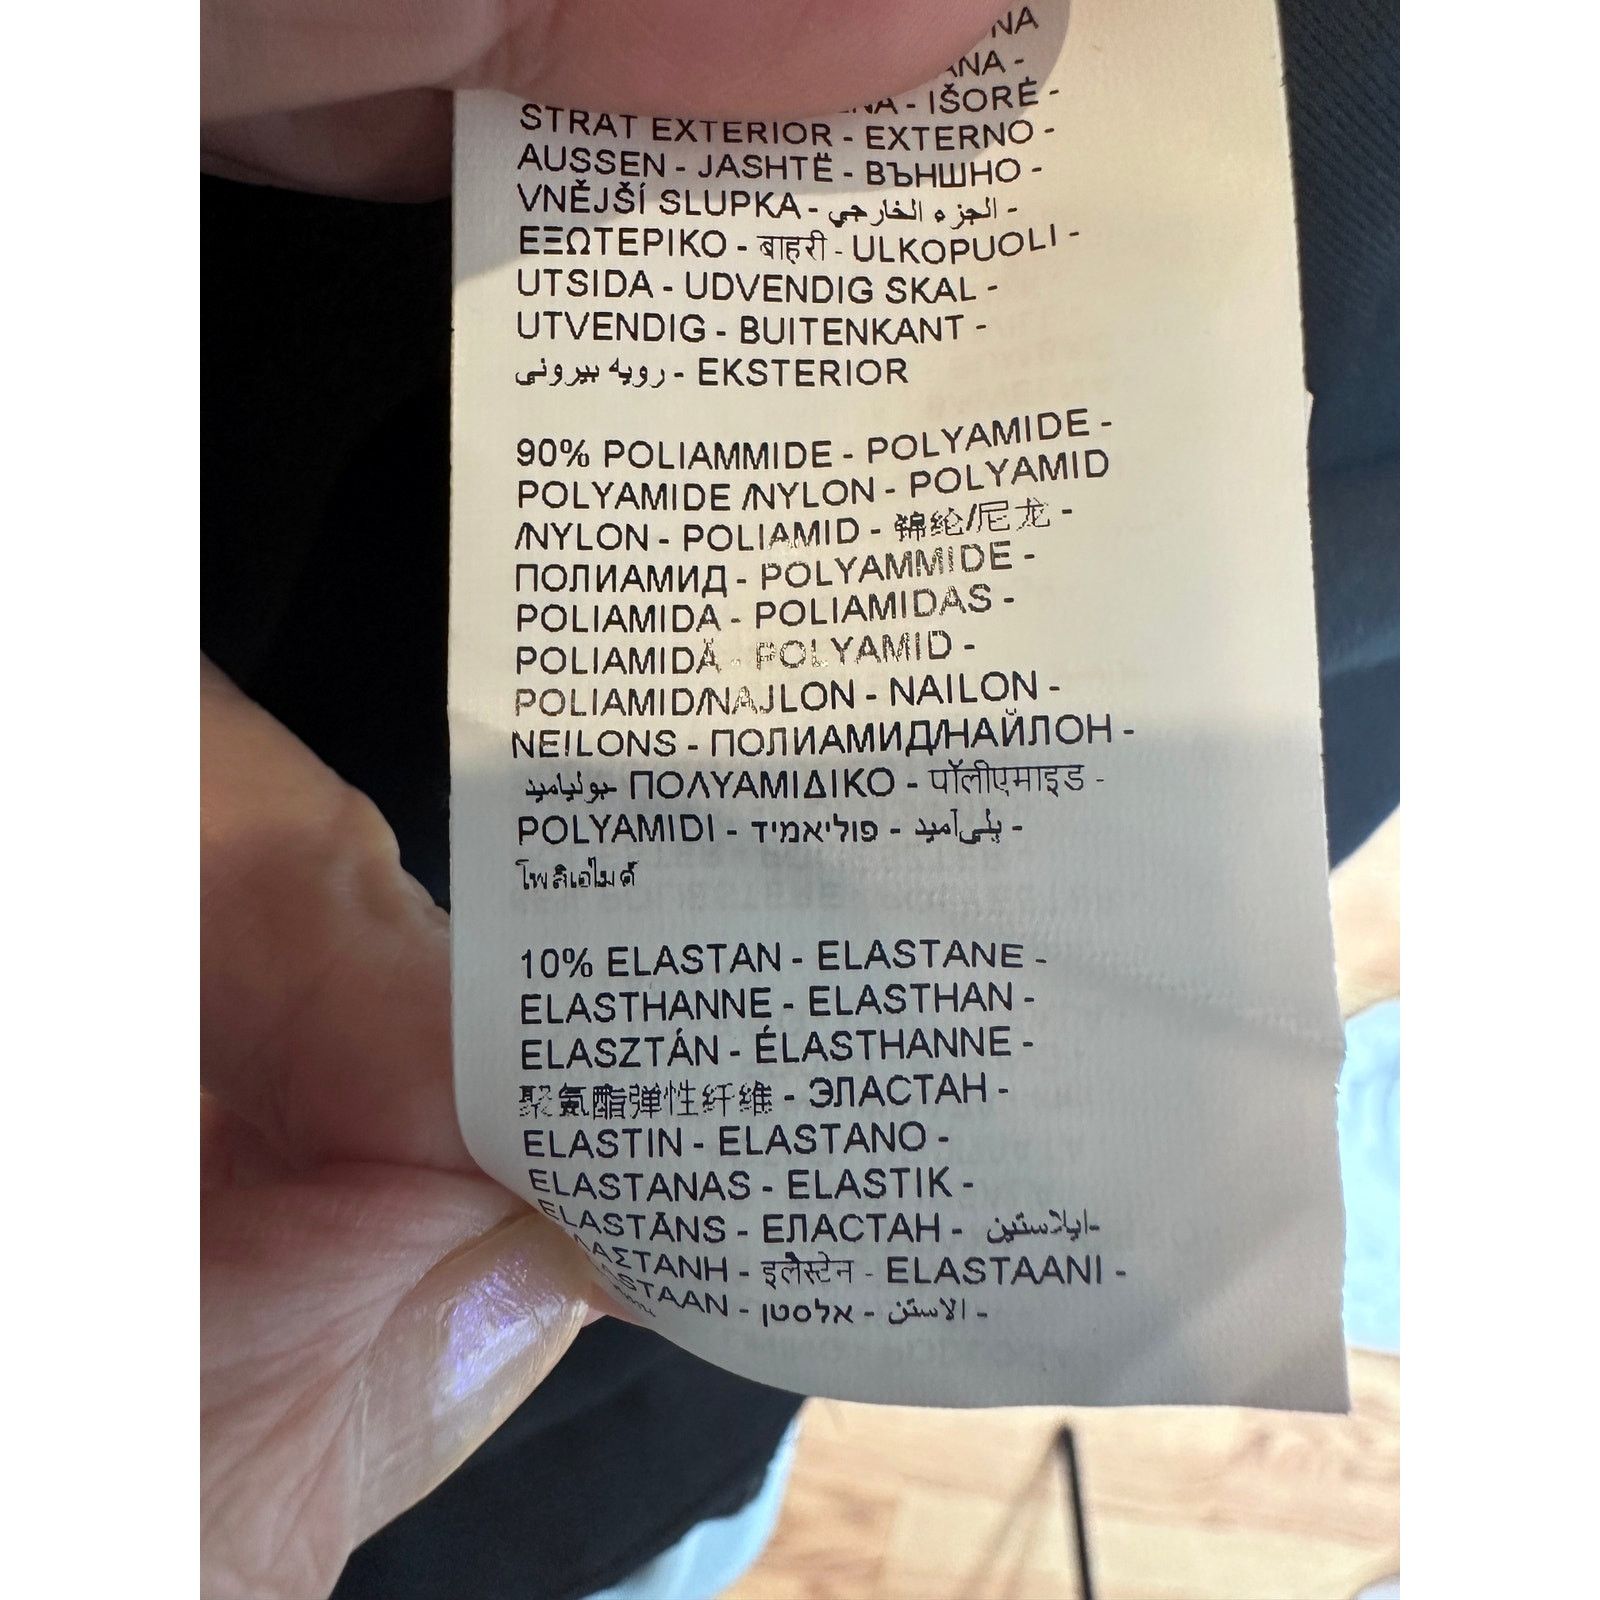 IŠORĖ -
STRAT EXTERIOR - EXTERNO -
AUSSEN - JASHTË - ВЪНШНО -
VNĚJŠÍ SLUPKA - الجزء الخارجي -
ΕΞΩΤΕΡΙΚΟ - बाहरी - ULKOPUOLI -
UTSIDA - UDVENDIG SKAL -
UTVENDIG - BUITENKANT -
رویه بیرونی - EKSTERIOR
90% POLIAMMIDE - POLYAMIDE -
POLYAMIDE /NYLON - POLYAMID
/NYLON - POLIAMID - 锦纶/尼龙 -
ПОЛИАМИД - POLYAMMIDE -
POLIAMIDA - POLIAMIDAS -
POLIAMIDĂ - POLYAMID -
POLIAMID/NAJLON - NAILON -
NEILONS - ПОЛИАМИД/НАЙЛОН -
بولياميد ΠΟΛΥΑΜΙΔΙΚΟ - पॉलीएमाइड -
POLYAMIDI - פוליאמיד - پلی‌آمید -
โพลิเอไมด์
10% ELASTAN - ELASTANE -
ELASTHANNE - ELASTHAN -
ELASZTÁN - ÉLASTHANNE -
聚氨酯弹性纤维 - ЭЛАСТАН -
ELASTIN - ELASTANO -
ELASTANAS - ELASTIK -
ELASTĀNS - ЕЛАСТАН - ايلاستين-
इलैस्टेन - ELASTAANI -
אלסטן - الاستن -